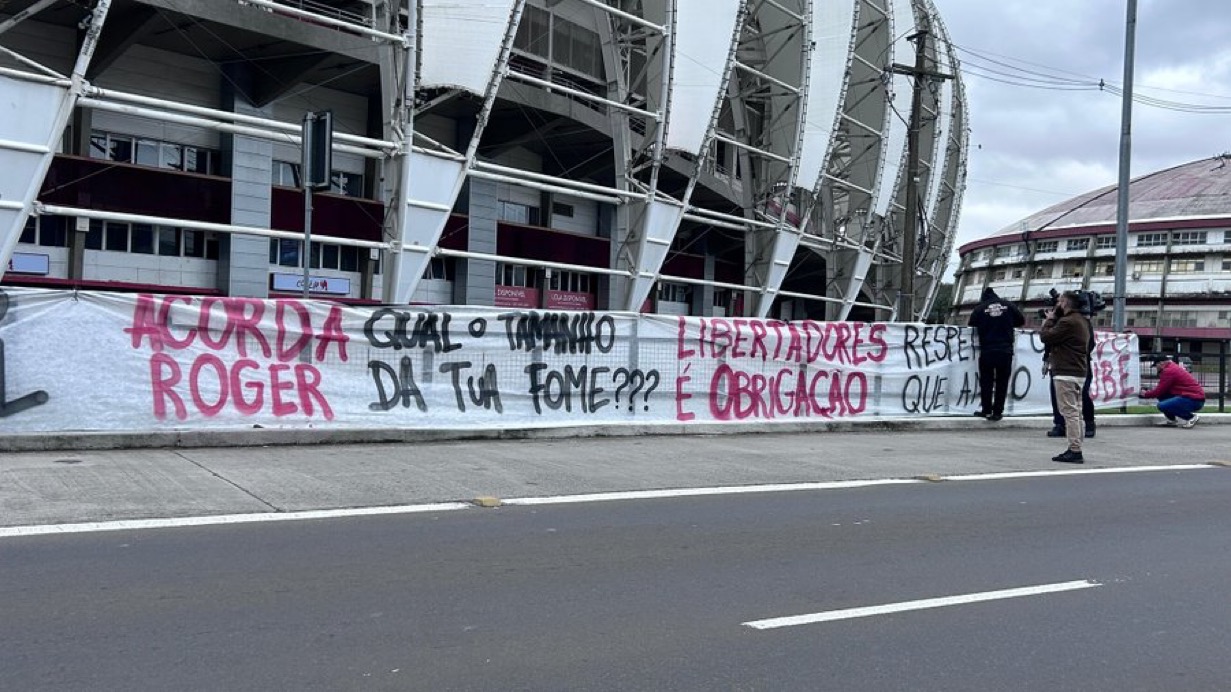 ACORDA
ROGER
QUAL O TAMANHO
DA TUA FOME???
LIBERTADORES
É OBRIGAÇÃO
QUE
DISPONÍVEL